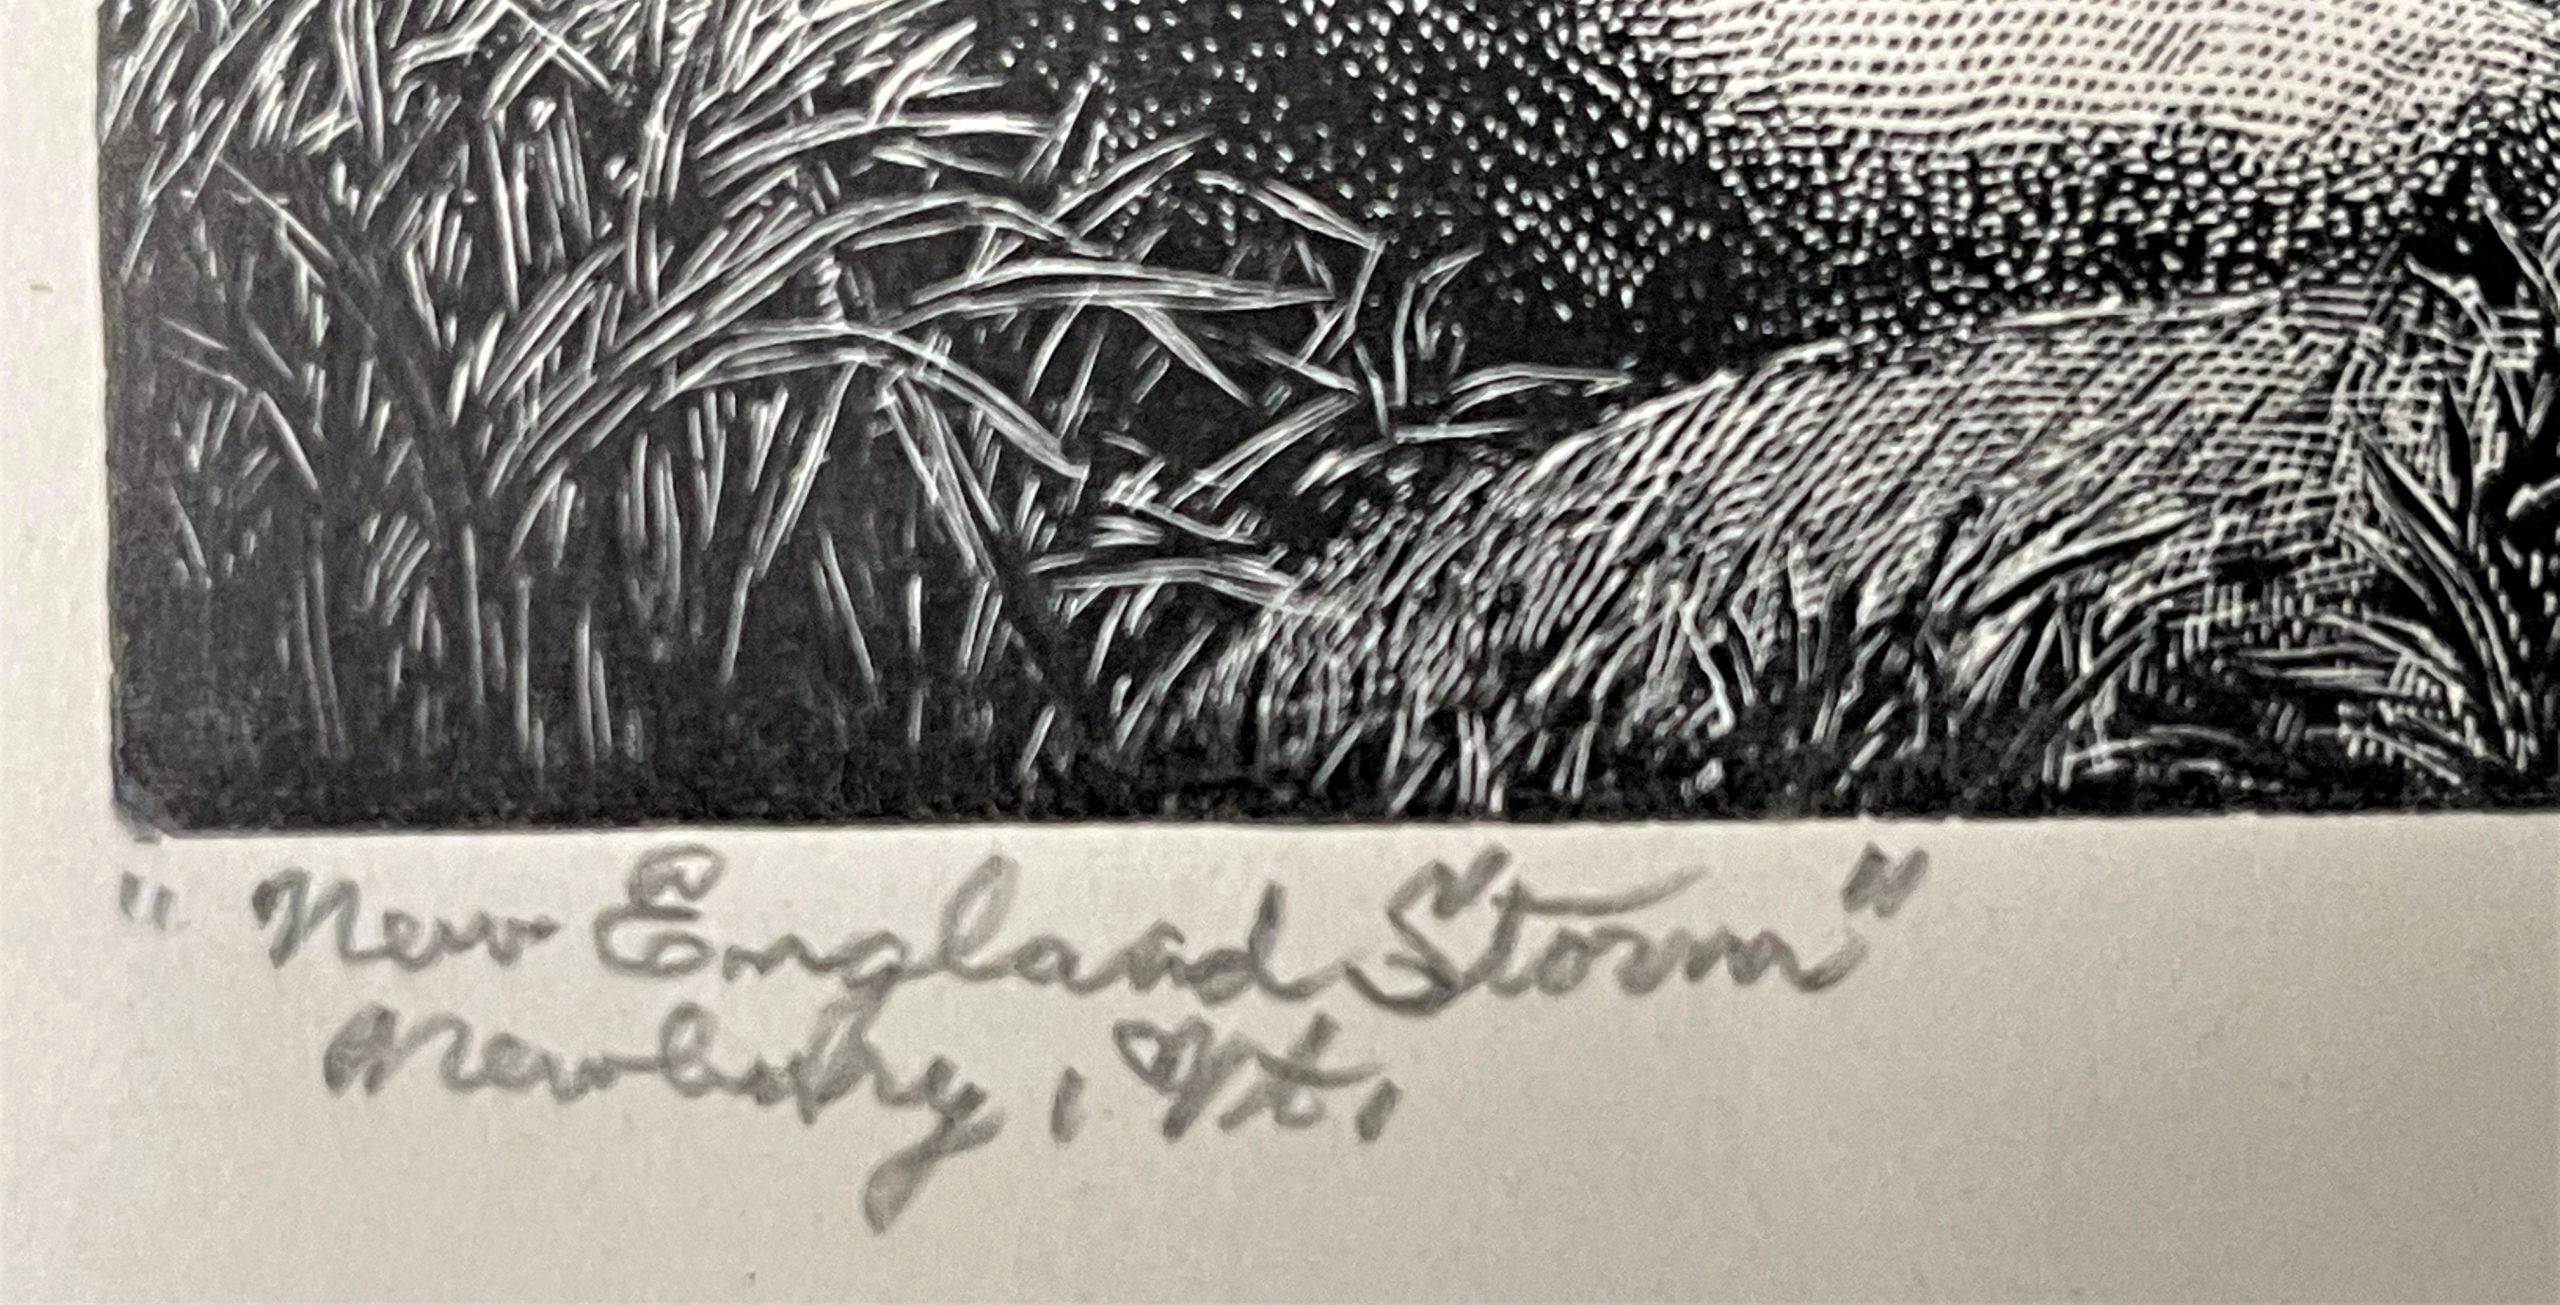 "New England Storm"
Newbury, Vt.